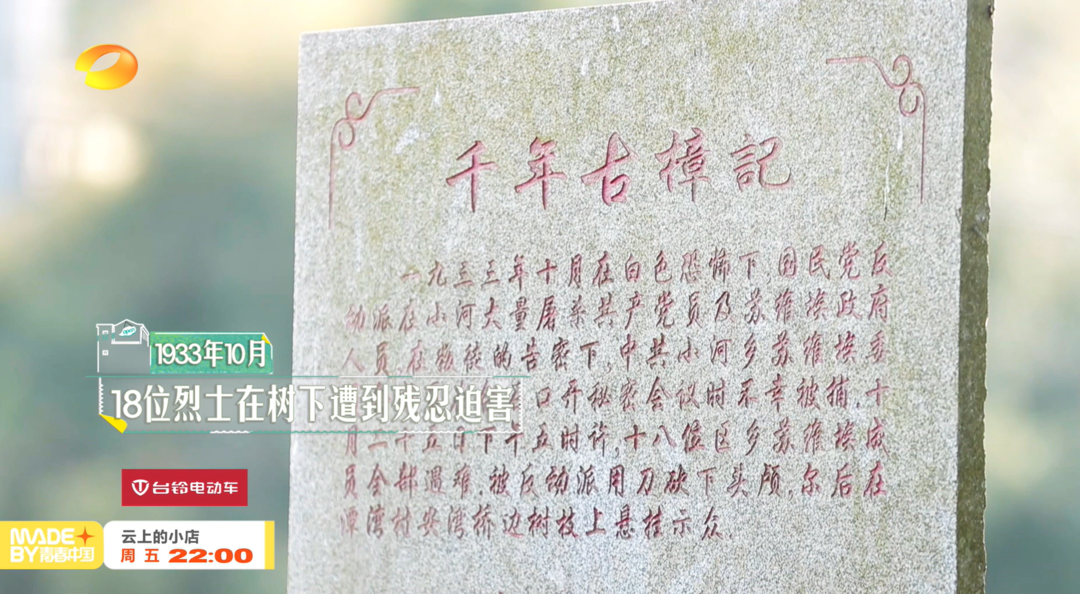 千年古樟記
一九三三年十月在白色恐怖下,国民党反
动派在小河大量屠杀共产党员及苏维埃政府
人员,在叛徒的告密下,中共小河乡苏维埃委
口开秘密会议时不幸被捕,十
月二十五日下午五时许,十八位区乡苏维埃成
员全部遇难,被反动派用刀砍下头颅,尔后在
潭湾村安湾桥边树枝上悬挂示众
1933年10月
18位烈士在树下遭到残忍迫害
台铃电动车
MADE
BY青春中国
云上的小店
周五 22:00